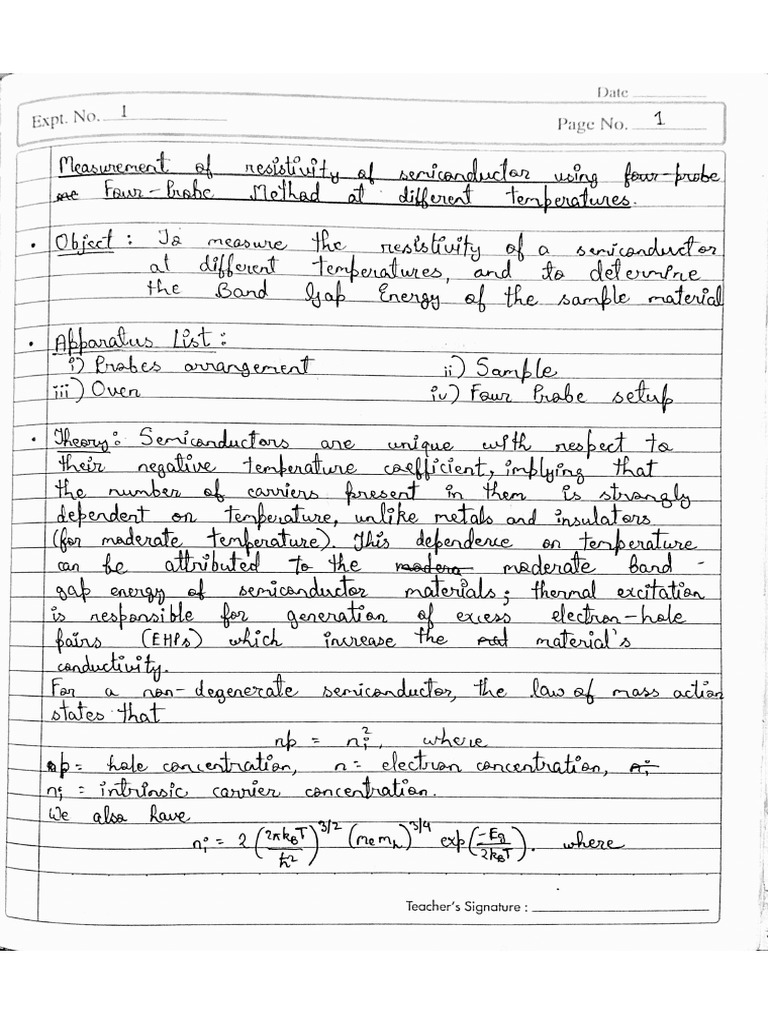 Date
Expt. No. 1
Page No. 1
Measurement of resistivity of semiconductor using four-probe
Four-Probe Method at different temperatures.
• Object : To measure the resistivity of a semiconductor
at different temperatures, and to determine
the Band Gap Energy of the sample material
• Apparatus List :
i) Probes arrangement ii) Sample
iii) Oven iv) Four Probe setup
• Theory : Semiconductors are unique with respect to
their negative temperature coefficient, implying that
the number of carriers present in them is strongly
dependent on temperature, unlike metals and insulators
(for moderate temperature). This dependence on temperature
can be attributed to the moderate band -
gap energy of semiconductor materials; thermal excitation
is responsible for generation of excess electron-hole
pairs (EHPs) which increase the material's
conductivity.
For a non-degenerate semiconductor, the law of mass action
states that
np = nᵢ², where
p = hole concentration, n = electron concentration,
nᵢ = intrinsic carrier concentration.
We also have
nᵢ = 2 (2πk_BT/ℏ²)^3/2 (mₑmₕ)^3/4 exp(-E_g/2k_BT). where
Teacher's Signature :